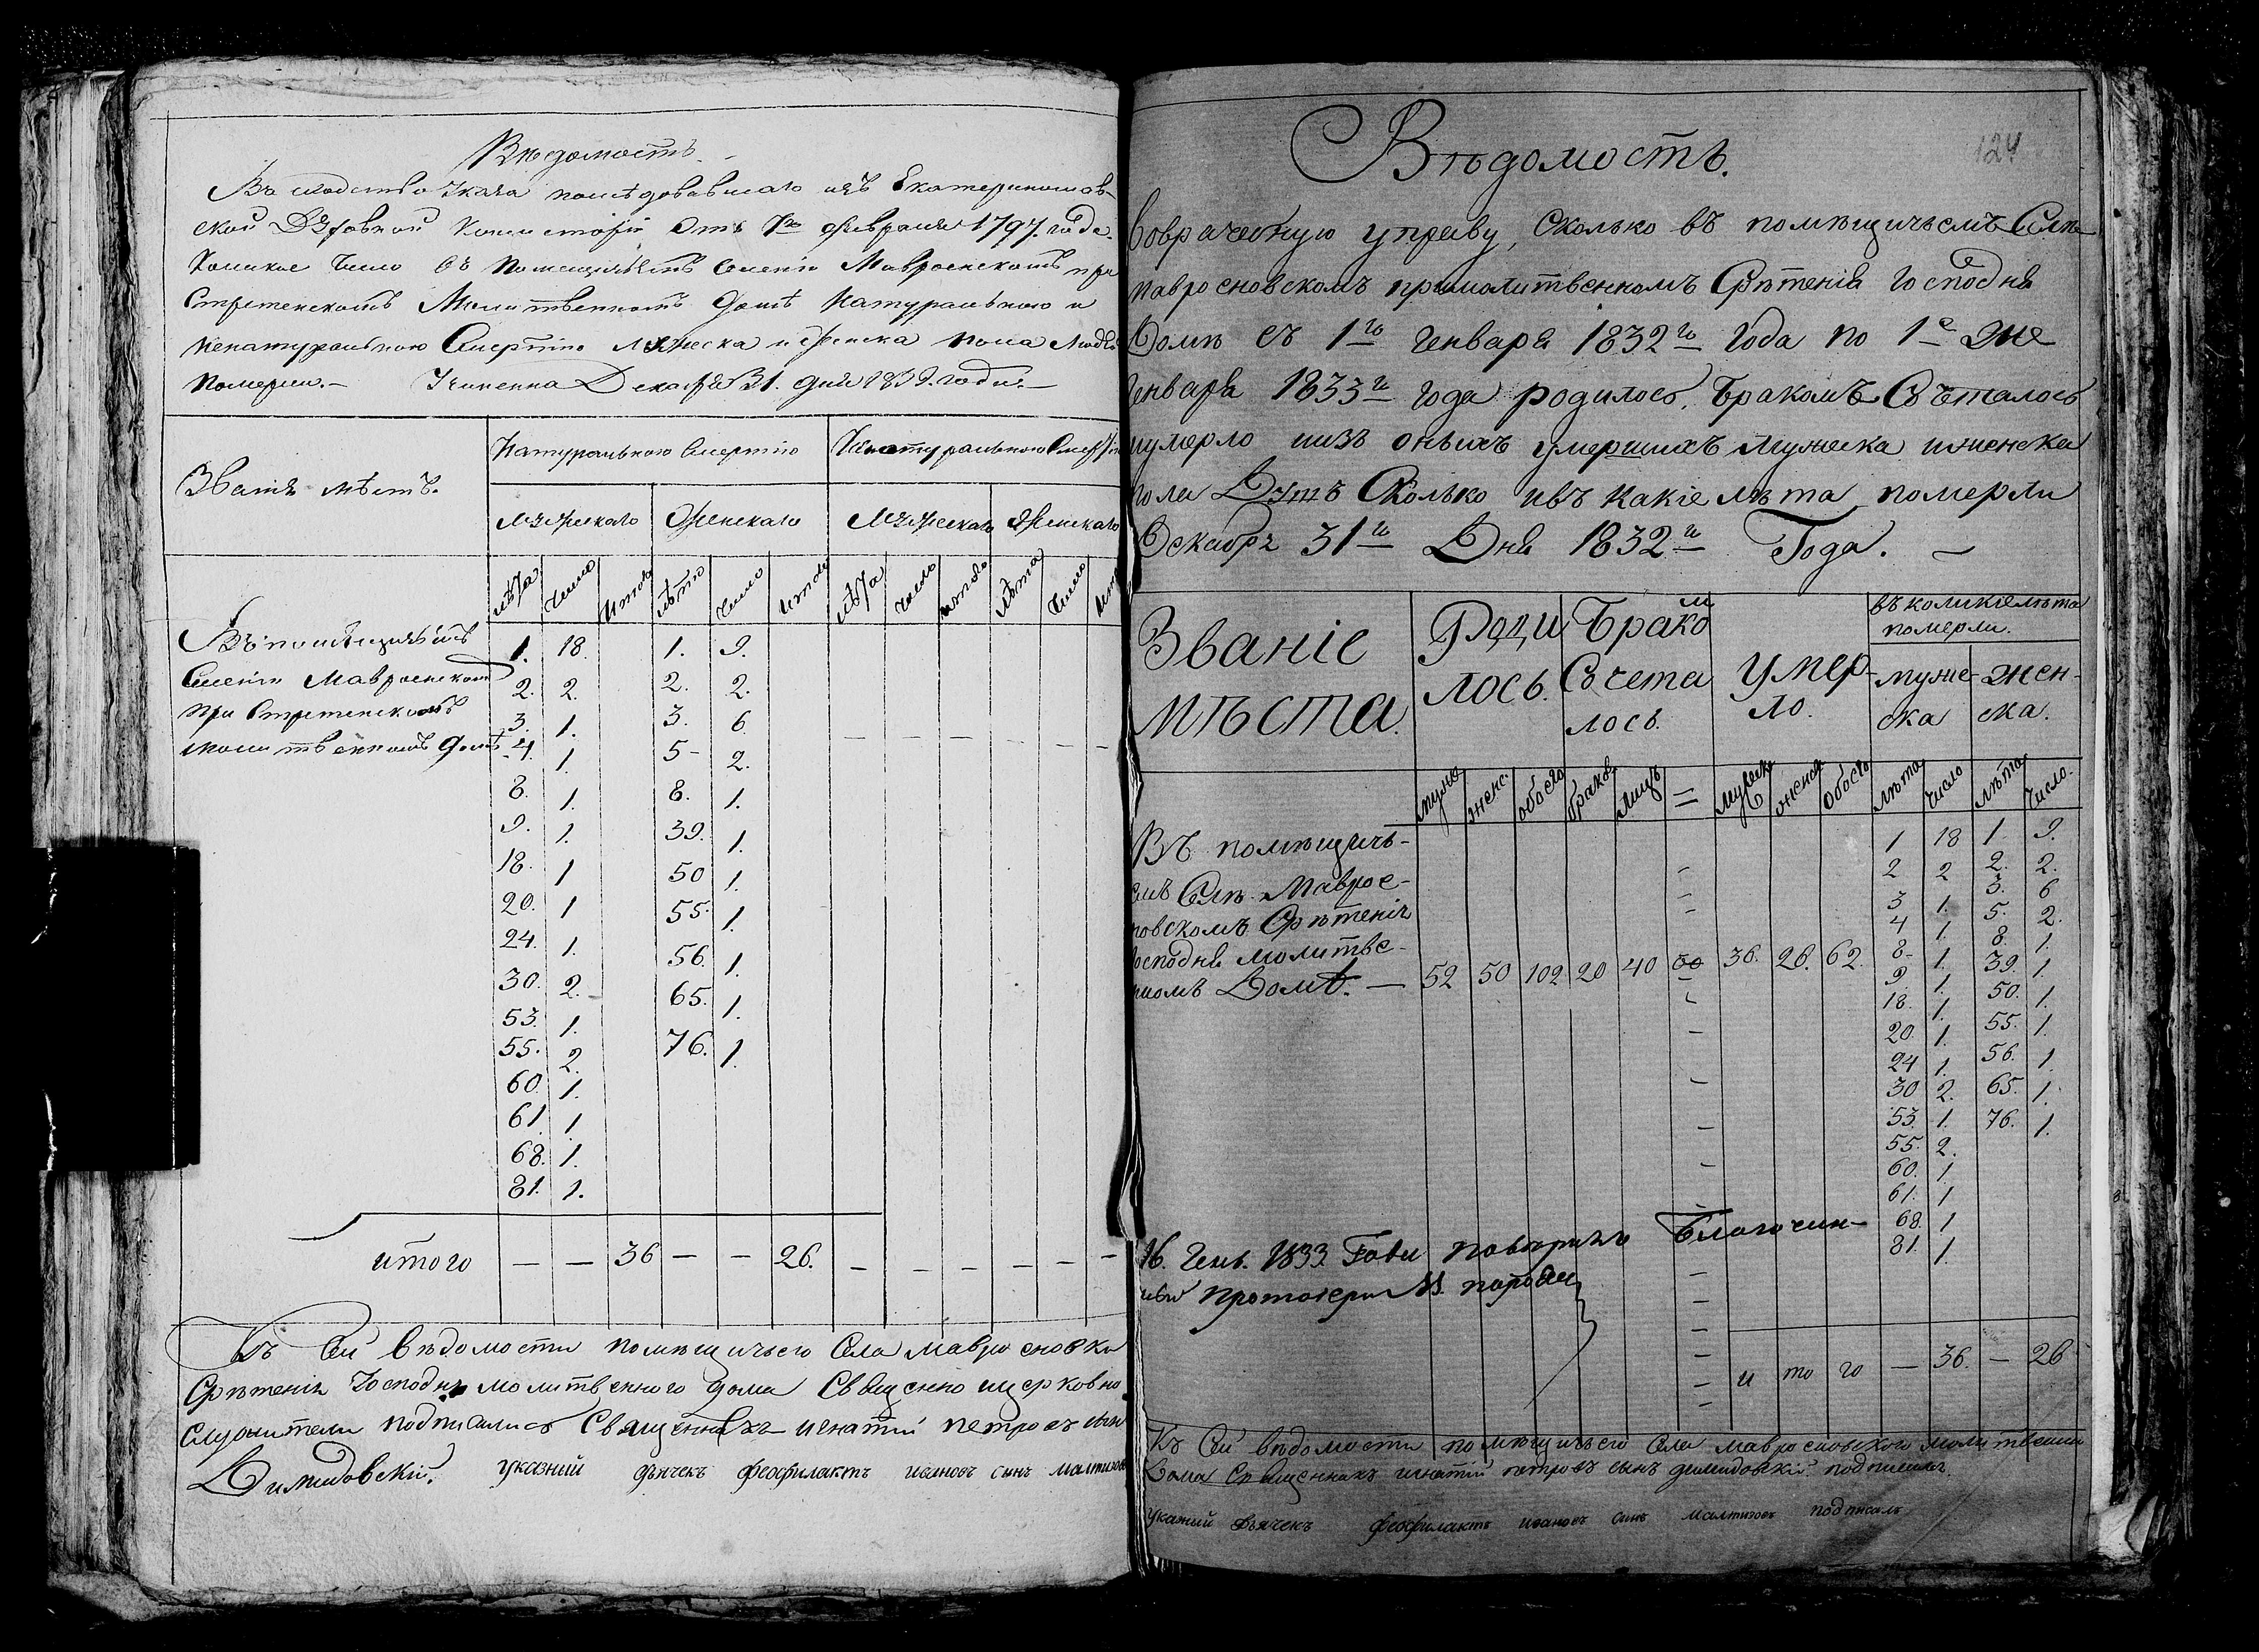 Вѣдомость.
Въ следство Указа последовавшаго изъ Екатеринослав-
ской Духовной Консисторіи Отъ 1го февраля 1797. года.
Коликое Число въ помещичьемъ селеніи Мавроенскомъ при
Стретенскомъ Молитвенномъ Доме Натуральною и
Ненатуральною Смертію Мужеска и Женска пола людей
Померли.— Учиненна Декабря 31. дня 1832. года.—
Званія мѣстъ.
Натуральною Смертію
Ненатуральною Смертію
Мужескаго Женскаго Мужескаго Женскаго
лѣта Число Итого лѣта Число Итого лѣта Число итого лѣта Число Итого
Въ помѣщичьемъ
Селеніи Мавроенском
При Стретенскомъ
молитвенномъ Домѣ
1. 18. 1. 9.
2. 2. 2. 2.
3. 1. 3. 6
4. 1. 5- 2.
8. 1. 8. 1.
9. 1. 39. 1.
18. 1 50 1.
20. 1 55. 1.
24. 1. 56. 1.
30. 2. 65. 1.
53. 1. 76. 1.
55. 2.
60. 1.
61. 1
68. 1.
81. 1.
итого — — 36 — — 26. — — — — — —
Къ Сей вѣдомости помѣщичьего Села Мавросновки
Срѣтенія Господня молитвенного дома Священно церковно
служители подписались Священникъ игнатий петровъ сын
Димидовскій. указний дьячекъ феофилактъ ивановъ синъ
124
Вѣдомость.
Воврачебную управу, Сколько въ помѣщичьемъ Селѣ
Мавросновскомъ примолитвенномъ Срѣтенія Господня
Домѣ съ 1го Генваря 1832го Года по 1е же
Генваря 1833го года родилось, Бракомъ Съчеталось
иумерло иизъ оныхъ умершихъ мужеска иженска
пола Душъ Сколько ивъ какіе лѣта померли
Декабря 31го Дня 1832го Года. —
Званіе
мѣста.
Роди
лось.
Брако
м
Счета
лось.
Умер-
ло.
въ коликіе лѣта
померли.
муже-
ска
жен-
ска.
муже женс. обоего браков лицъ = мужеска женска обоего лѣта число лѣта Число.
Въ помѣщичь-
емъ Селѣ Мавросе-
новскомъ Срѣтенія
Господня молитве-
нномъ Домѣ. — 52 50 102 20 40 36. 26. 62.
1 18 1. 9.
2 2 2. 2.
3 1. 3. 6
4 1. 5. 2.
8- 1. 8. 1.
9. 1. 39. 1.
18. 1. 50. 1.
20. 1. 55. 1.
24 1. 56. 1.
30 2. 65. 1.
53. 1. 76. 1.
55. 2.
60. 1.
61. 1
68. 1
81. 1.
16. Генв. 1833 Года поверялъ Благочин-
ный протоіерей
и то го — 36. — 26
Къ Сей вѣдомости помѣщичьего Села мавросновского молитвенна
Дома Священникъ игнатій петровъ сынъ димидовскій подписалъ.
указний дьячекъ феофилактъ ивановъ синъ подписалъ